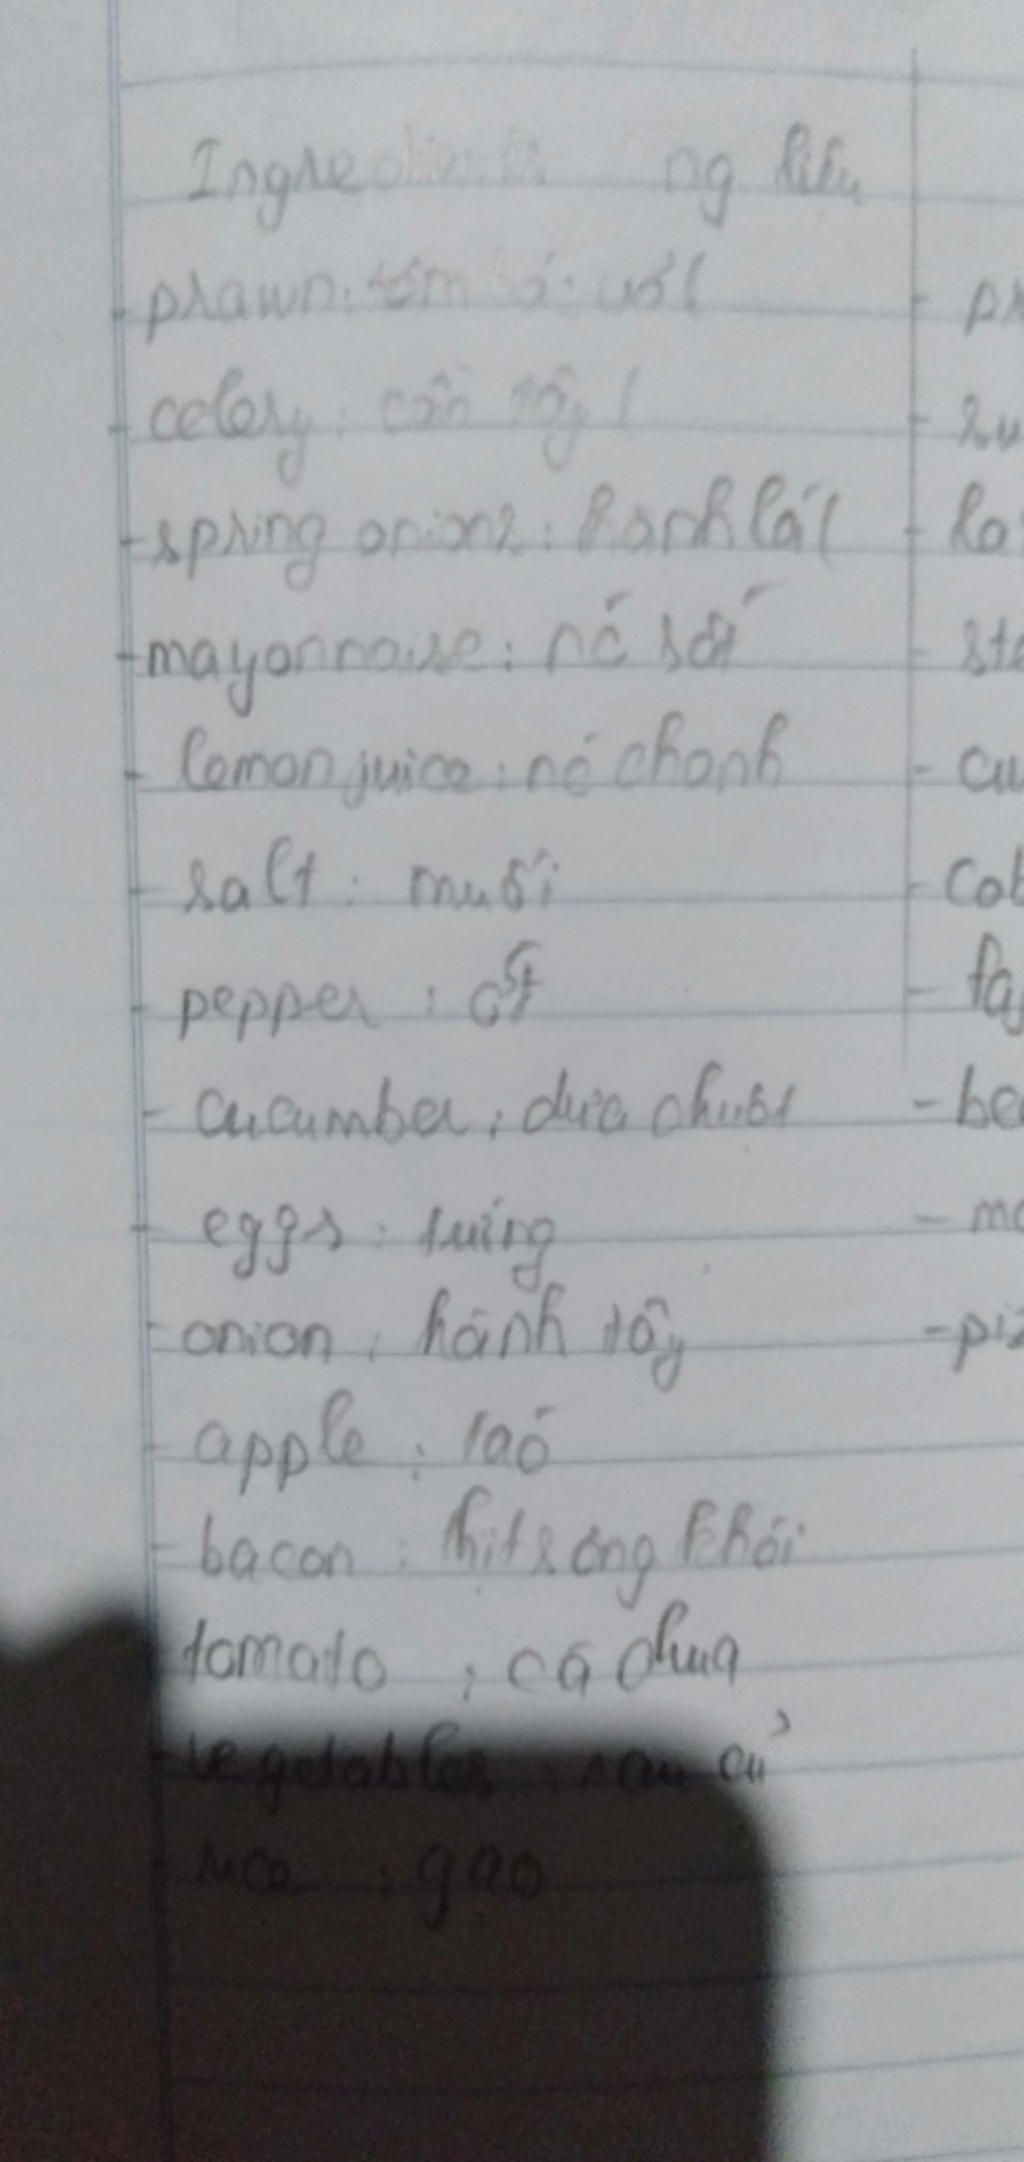 Ingredients ng liệu
prawn: tôm
celery: cần tây
spring onions: hành lá
mayonnaise: nc sốt
lemon juice: nc chanh
salt: muối
pepper: ớt
cucumber: dưa chuột
eggs: trứng
onion: hành tây
apple: táo
bacon: thịt xông khói
tomato: cà chua
vegetables: rau củ
rice: gạo
pr
su
sta
cu
be
piz